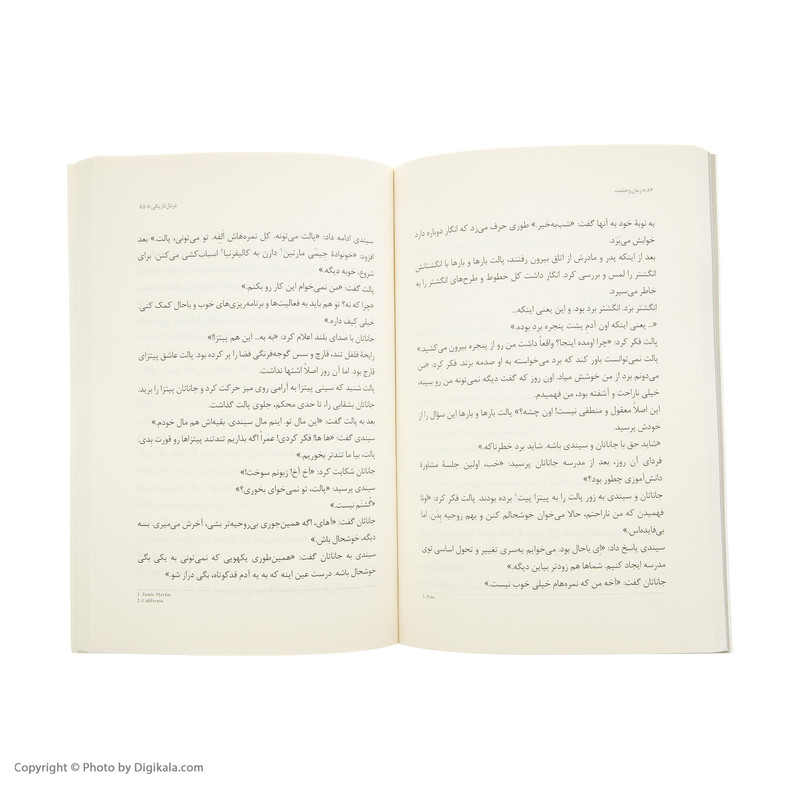 ۸۴ ※ زمان وحشت
به نوبهٔ خود به آنها گفت: «شب‌به‌خیر.» طوری حرف می‌زد که انگار دوباره دارد
خوابش می‌بَرَد.
بعد از اینکه پدر و مادرش از اتاق بیرون رفتند، پالت بارها و بارها با انگشتانش
انگشتر را لمس و بررسی کرد. انگار داشت کل خطوط و طرح‌های انگشتر را به
خاطر می‌سپرد.
انگشتر برَد. انگشتر برد بود. و این یعنی اینکه..
«.. یعنی اینکه اون آدم پشت پنجره برد بوده.»
پالت فکر کرد: «چرا اومده اینجا؟ واقعاً داشت من رو از پنجره بیرون می‌کشید؟»
پالت نمی‌توانست باور کند که برد می‌خواسته به او صدمه بزند. فکر کرد: «من
می‌دونم برد از من خوشش میاد. اون روز که گفت دیگه نمی‌تونه من رو ببینه،
خیلی ناراحت و آشفته بود، من فهمیدم.
این اصلاً معقول و منطقی نیست! اون چشه؟» پالت بارها و بارها این سؤال را از
خودش پرسید.
«شاید حق با جاناتان و سیندی باشه. شاید برد خطرناکه.»
فردای آن روز، بعد از مدرسه جاناتان پرسید: «خب، اولین جلسهٔ مشاورهٔ
دانش‌آموزی چطور بود؟»
جاناتان و سیندی به زور پالت را به پیتزا پیت¹ برده بودند. پالت فکر کرد: «اونا
فهمیدن که من ناراحتم، حالا می‌خوان خوشحالم کنن و بهم روحیه بدَن اما
بی‌فایده‌اس.»
سیندی پاسخ داد: «ای باحال بود. می‌خوایم یه‌سری تغییر و تحول اساسی توی
مدرسه ایجاد کنیم. شماها هم زودتر بیاین دیگه.»
جاناتان گفت: «آخه من که نمره‌هام خیلی خوب نیست.»
1. Pete.
در دل تاریکی ※ ۸۵
سیندی ادامه داد: «پالت می‌تونه. کل نمره‌هاش الفه. تو می‌تونی، پالت.» بعد
افزود: «خونوادهٔ جیمی مارتین¹ دارن به کالیفرنیا² اسباب‌کشی می‌کنن. برای
شروع، خوبه دیگه.»
پالت گفت: «من نمی‌خوام این کار رو بکنم.»
«چرا که نه؟ تو هم باید به فعالیت‌ها و برنامه‌ریزی‌های خوب و باحال کمک کنی.
خیلی کیف داره.»
جاناتان با صدای بلند اعلام کرد: «به به... این هم پیتزا!»
رایحهٔ فلفل تند، قارچ و سس گوجه‌فرنگی فضا را پر کرده بود. پالت عاشق پیتزای
قارچ بود. اما آن روز اصلاً اشتها نداشت.
پالت شنید که سینی پیتزا به آرامی روی میز حرکت کرد و جاناتان پیتزا را برید.
جاناتان بشقابی را، تا حدی محکم، جلوی پالت گذاشت.
بعد به پالت گفت: «این مال تو. اینم مال سیندی. بقیه‌اش هم مال خودم.»
سیندی گفت: «ها ها! فکر کردی! عمراً اگه بذاریم تندتند پیتزاها رو قورت بدی.
پالت، بیا ما تندتر بخوریم.»
جاناتان شکایت کرد: «آخ آخ! زبونم سوخت!»
سیندی پرسید: «پالت، تو نمی‌خوای بخوری؟»
«گُشنَم نیست.»
جاناتان گفت: «آهای، اگه همین‌جوری بی‌روحیه‌تر بشی، آخرش می‌میری. بسه
دیگه، خوشحال باش.»
سیندی به جاناتان گفت: «همین‌طوری یکهویی که نمی‌تونی به یکی بگی
خوشحال باشه. درست عین اینه که به یه آدم قدکوتاه، بگی دراز شو.»
1. Jamie Martin.
2. California.
Copyright © Photo by Digikala.com